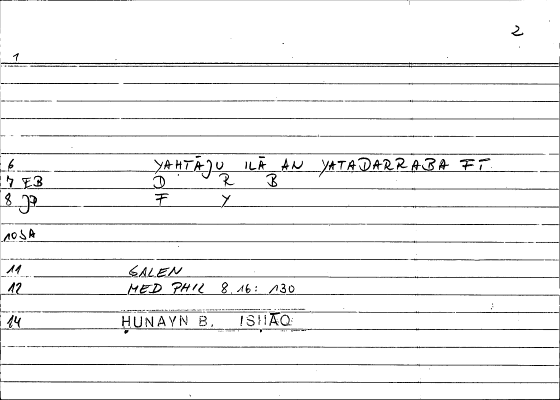 2
1
6 YAHTĀJU ILĀ AN YATADARRABA FĪ
7 EB D R B
8 JP F Y
10 JA
11 GALEN
12 MED PHIL 8.16: 130
14 ḤUNAYN B. ISḤĀQ